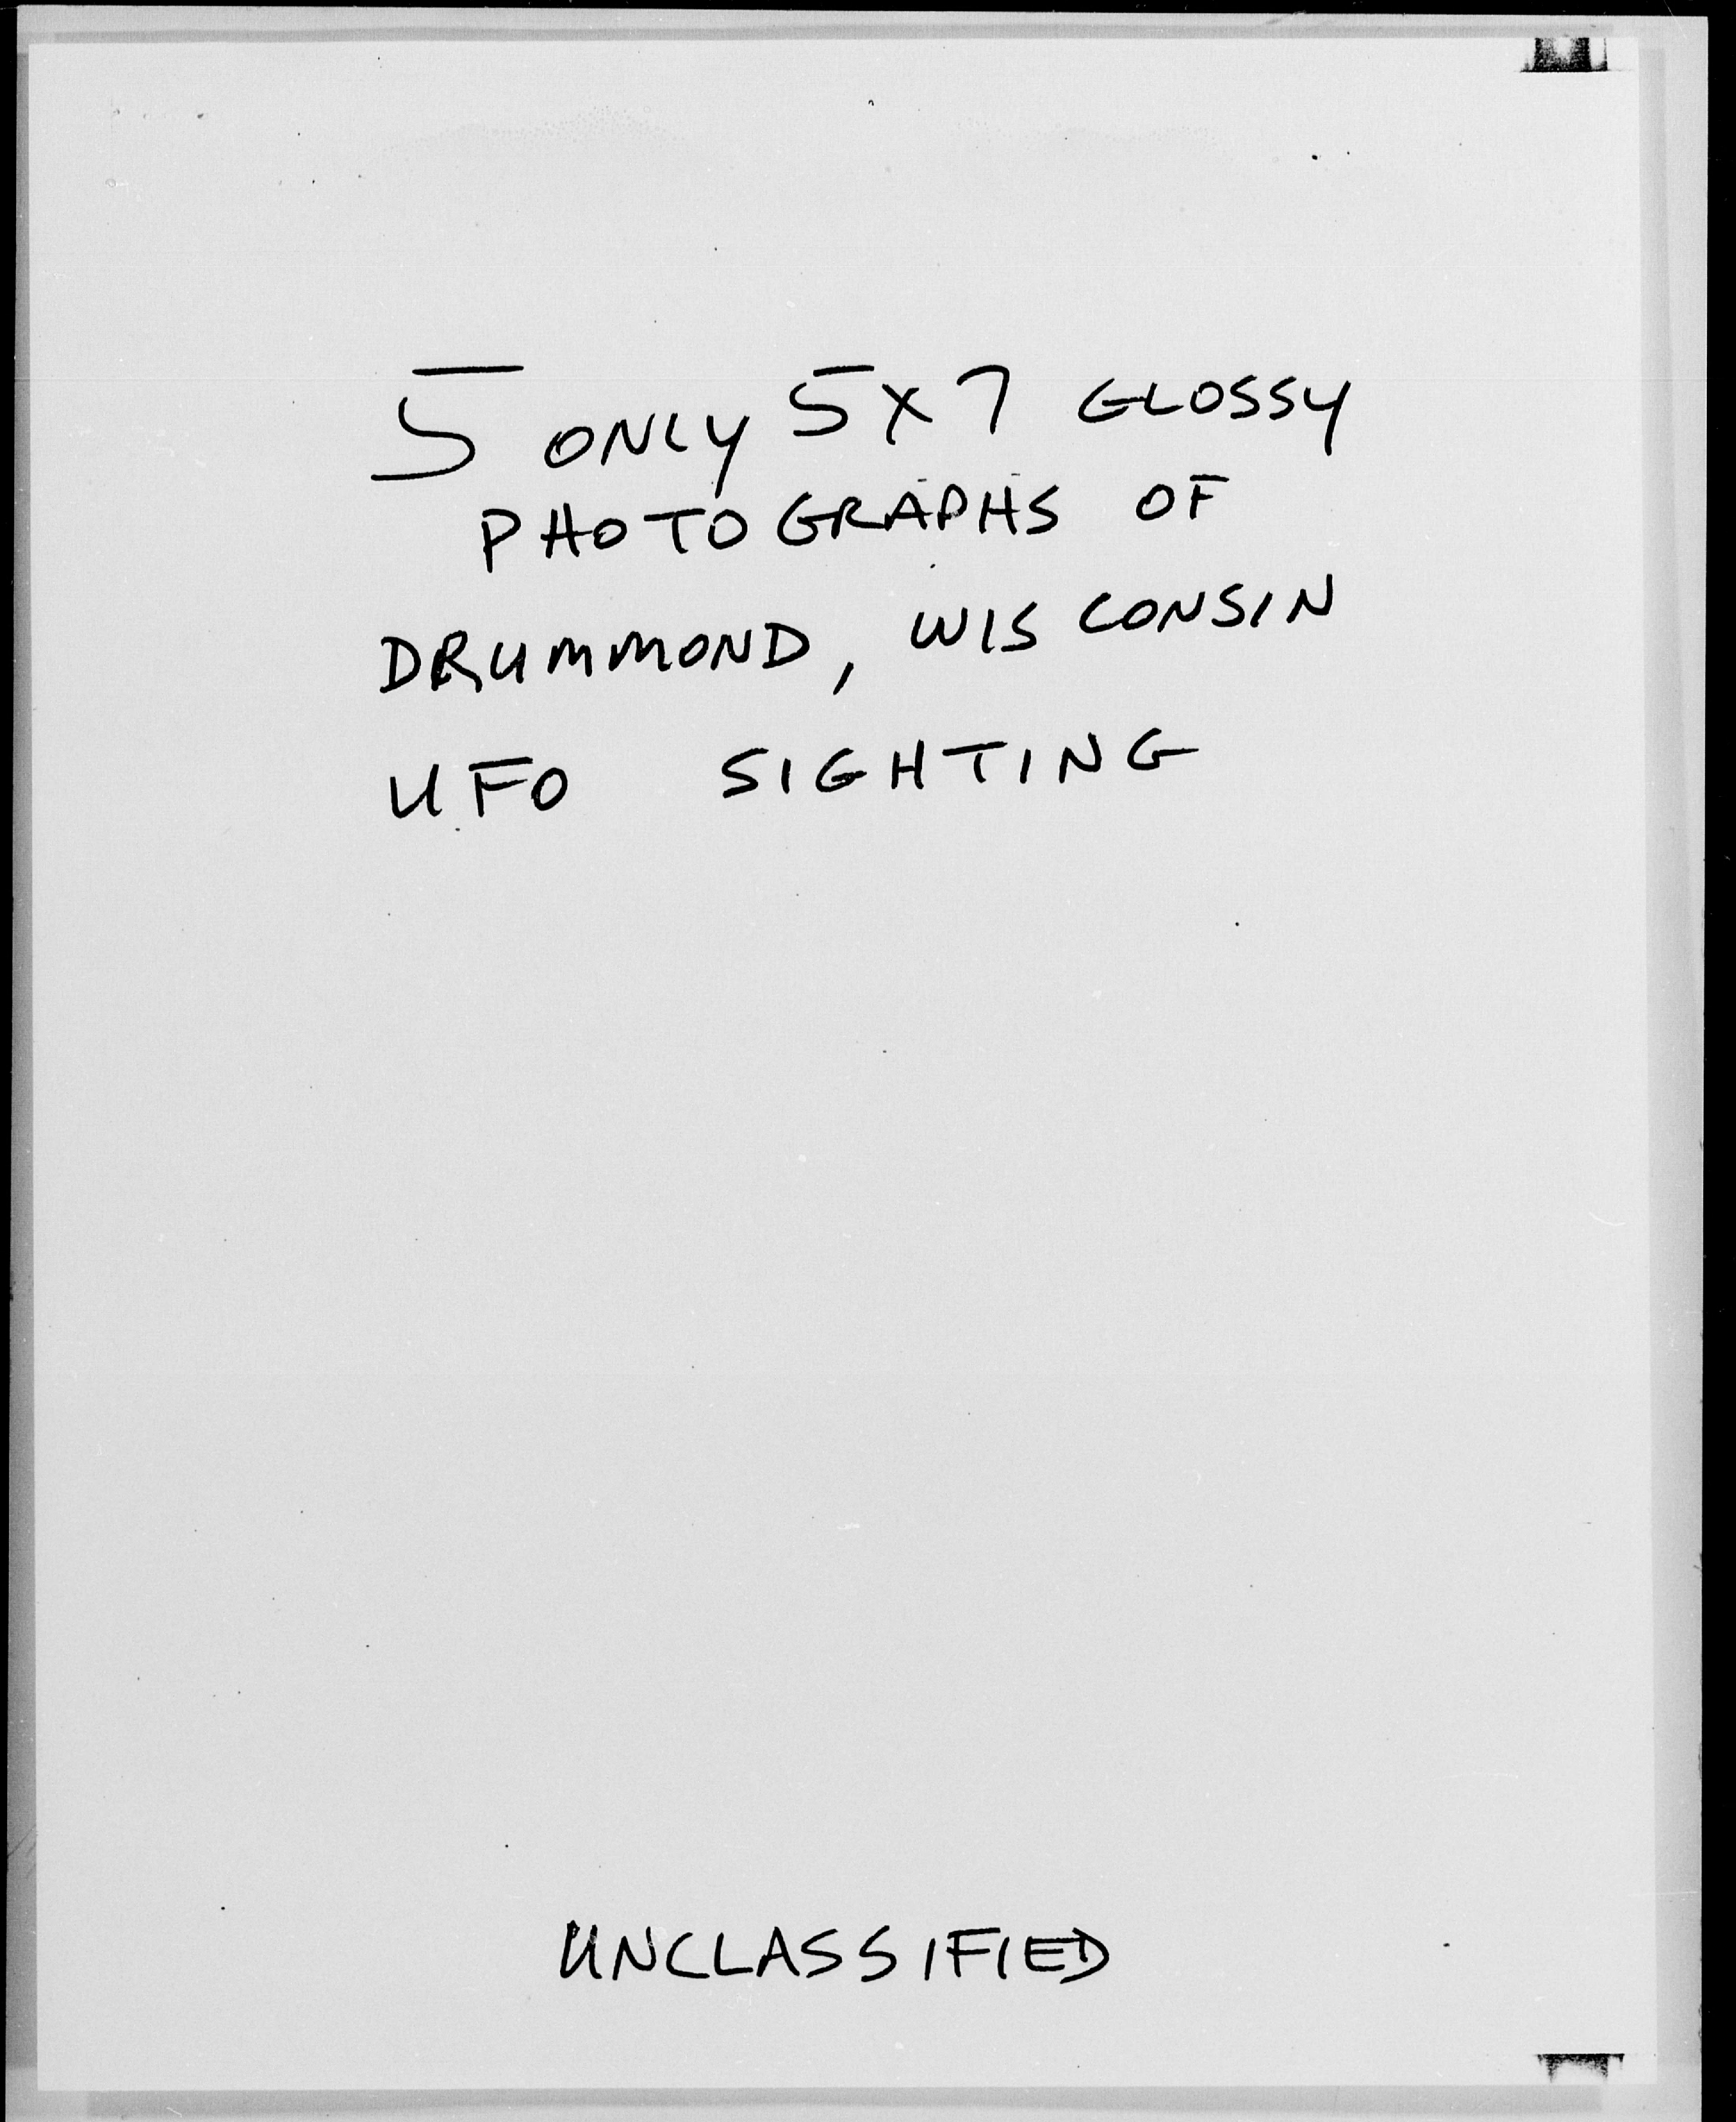 5 ONLY 5X7 GLOSSY
PHOTOGRAPHS OF
DRUMMOND, WISCONSIN
UFO SIGHTING
UNCLASSIFIED